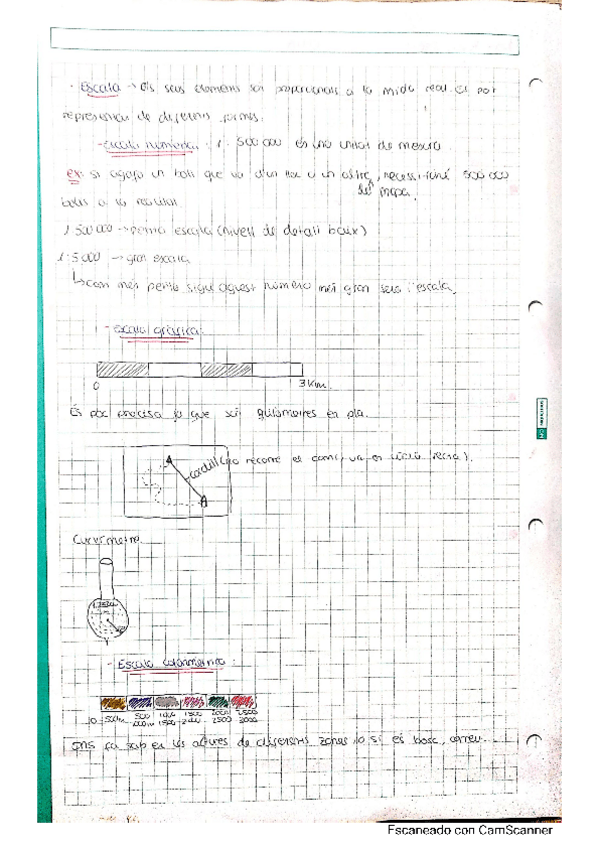 - Escala → Els seus elements són proporcionals a la mida real. Es pot
representar de diferents formes.
- escala numèrica: 1:500 000 és una unitat de mesura
ex: si agafo un boli que va d'un lloc a un altre, necessitaré 500 000
del mapa.
bolis a la realitat
1:500 000 → petita escala (nivell de detall baix)
1:5 000 → gran escala
↳ com més petit sigui aquest número més gran serà l'escala.
- escala gràfica:
0 3 Km.
És poc precisa ja que són quilòmetres en pla.
A cordill (no recorre el camí, va en línia recta).
A
Curvímetre
- Escala colorimètrica
0 500m 500 1000m 1000 1500 1500 2000 2000 2500 2500 3000
ens fa saber les altures de diferents zones o si és bosc, conreu...
Escaneado con CamScanner